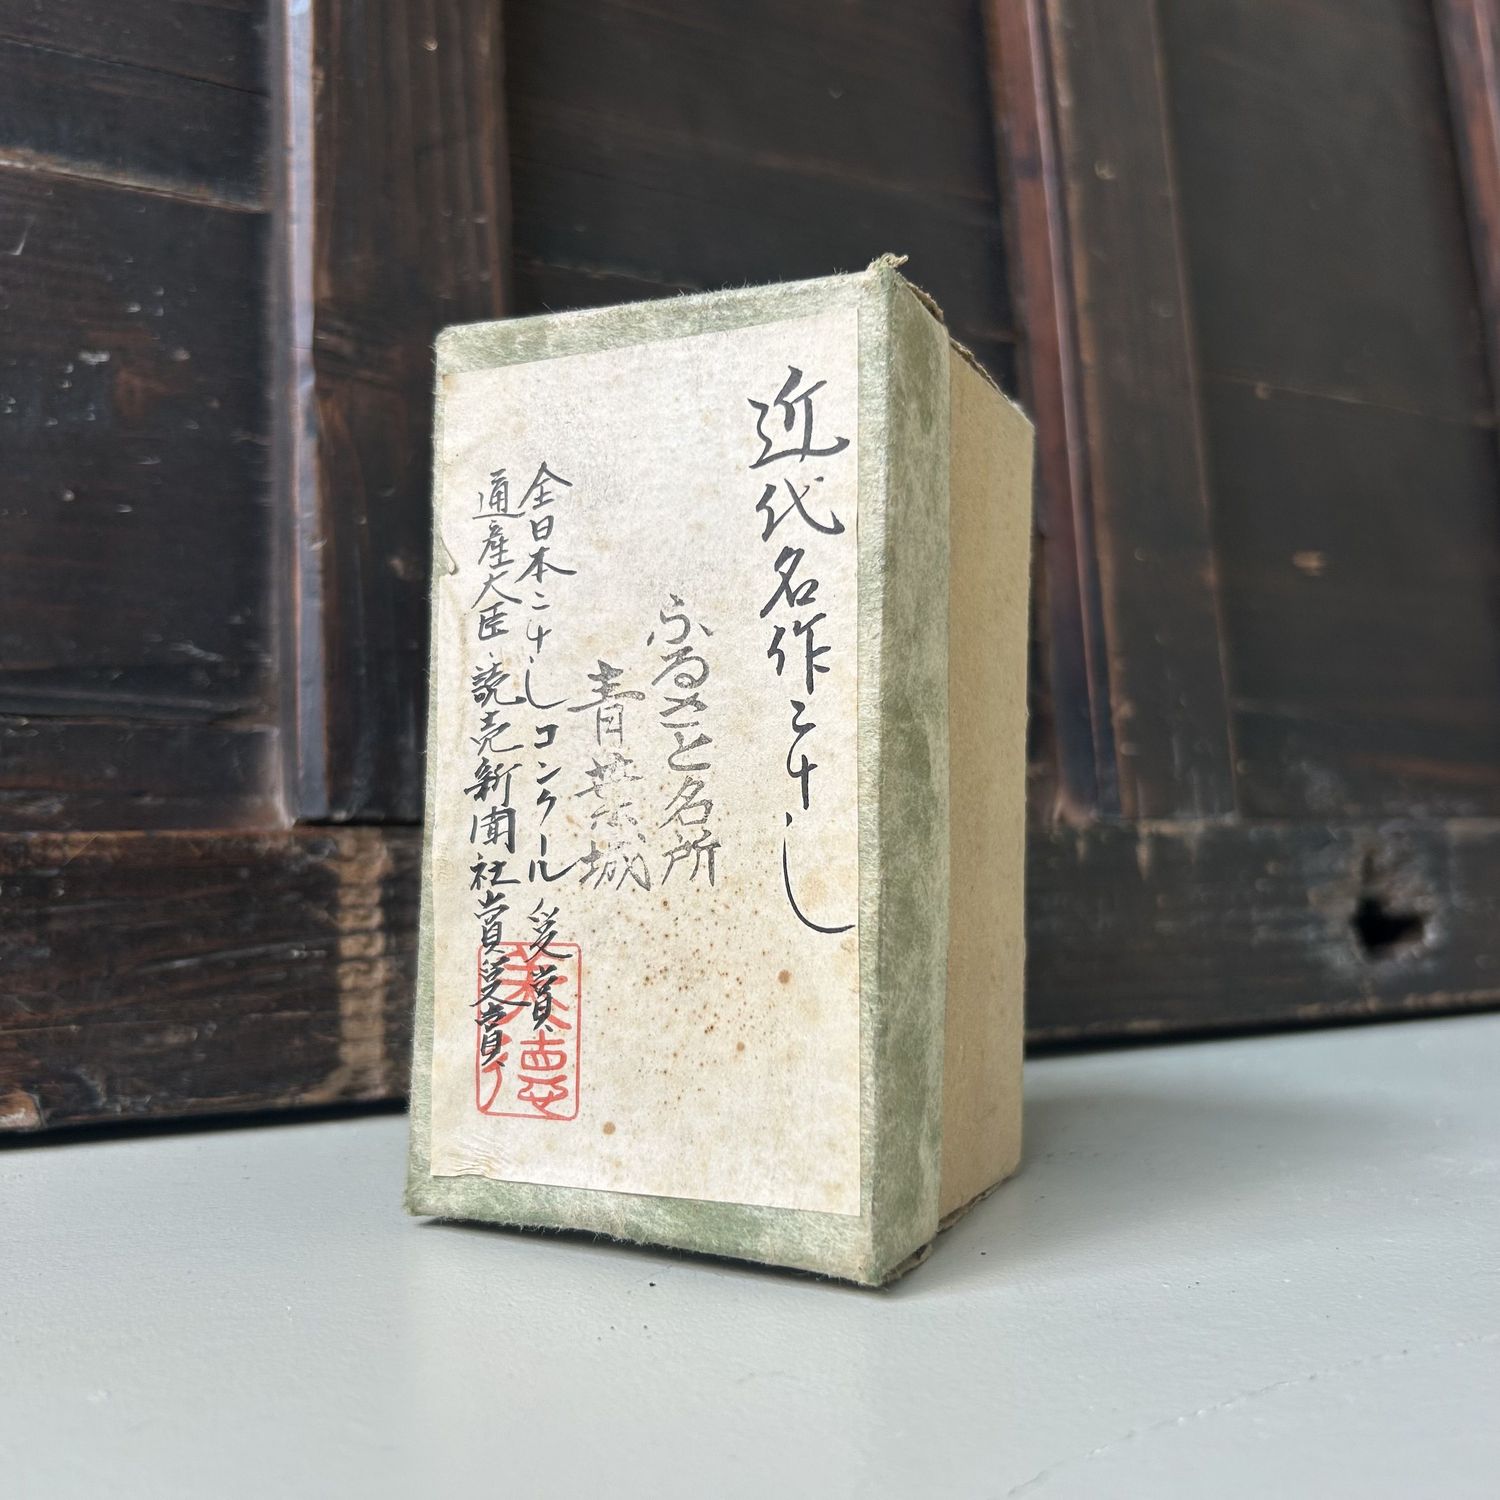 近代名作こけし
ふるさと名所
青葉城
全日本こけしコンクール受賞
通産大臣・読売新聞社賞受賞